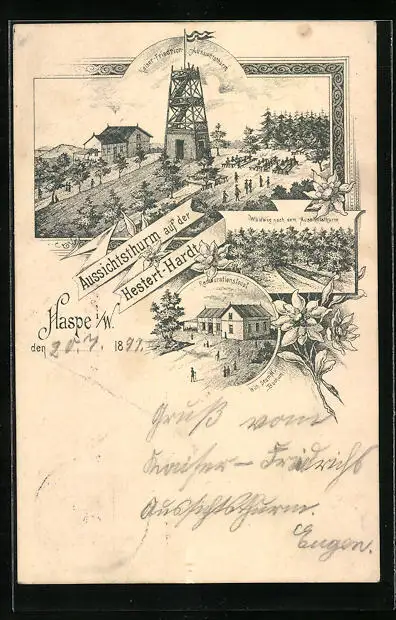 Kaiser-Friedrich-Aussichtsthurm
Aussichtsthurm auf der
Hestert-Hardt
Waldweg nach dem Aussichtsthurm
Restaurationslocal
Haspe i/W.
den 20.7. 1897.
Gruß vom
Kaiser-Friedrichs
Aussichtsthurm.
Eugen.